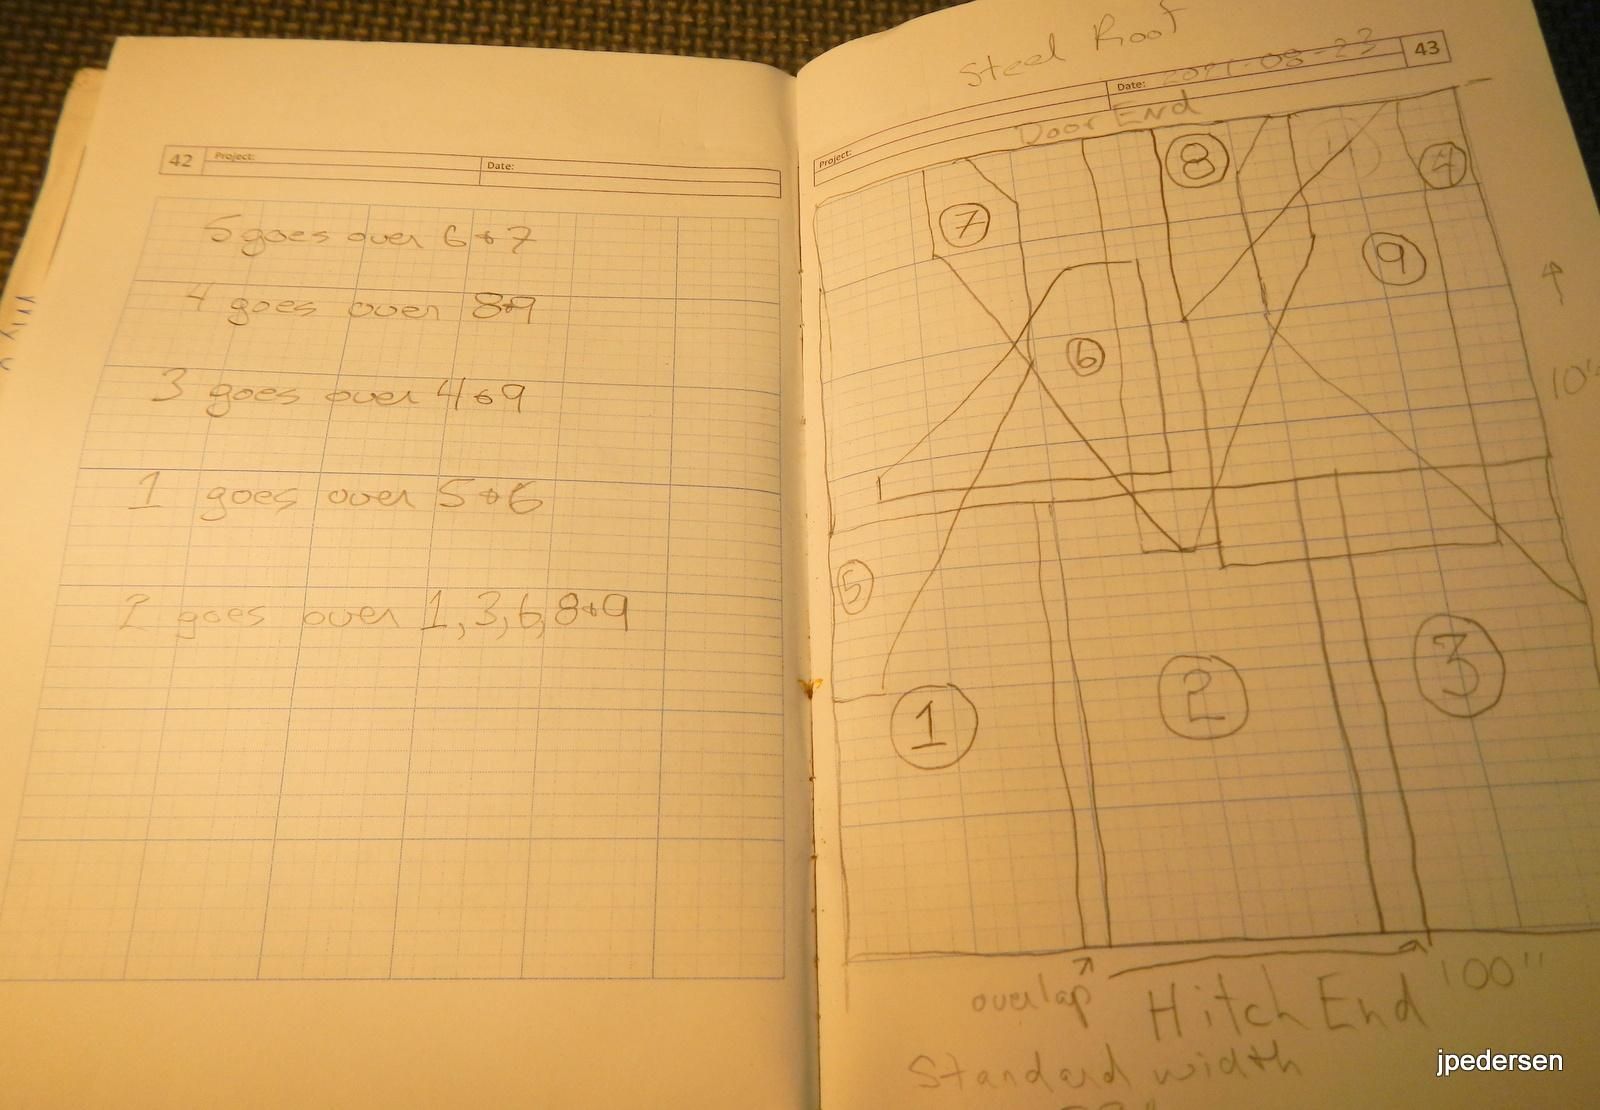 42
Project:
Date:
5 goes over 6&7
4 goes over 8&9
3 goes over 4&9
1 goes over 5&6
2 goes over 1,3,6,8&9
Steel Roof
Project:
Date: 2021-08-23
43
Door End
8
4
7
9
6
5
3
2
1
overlap
Hitch End
Standard width
jpedersen